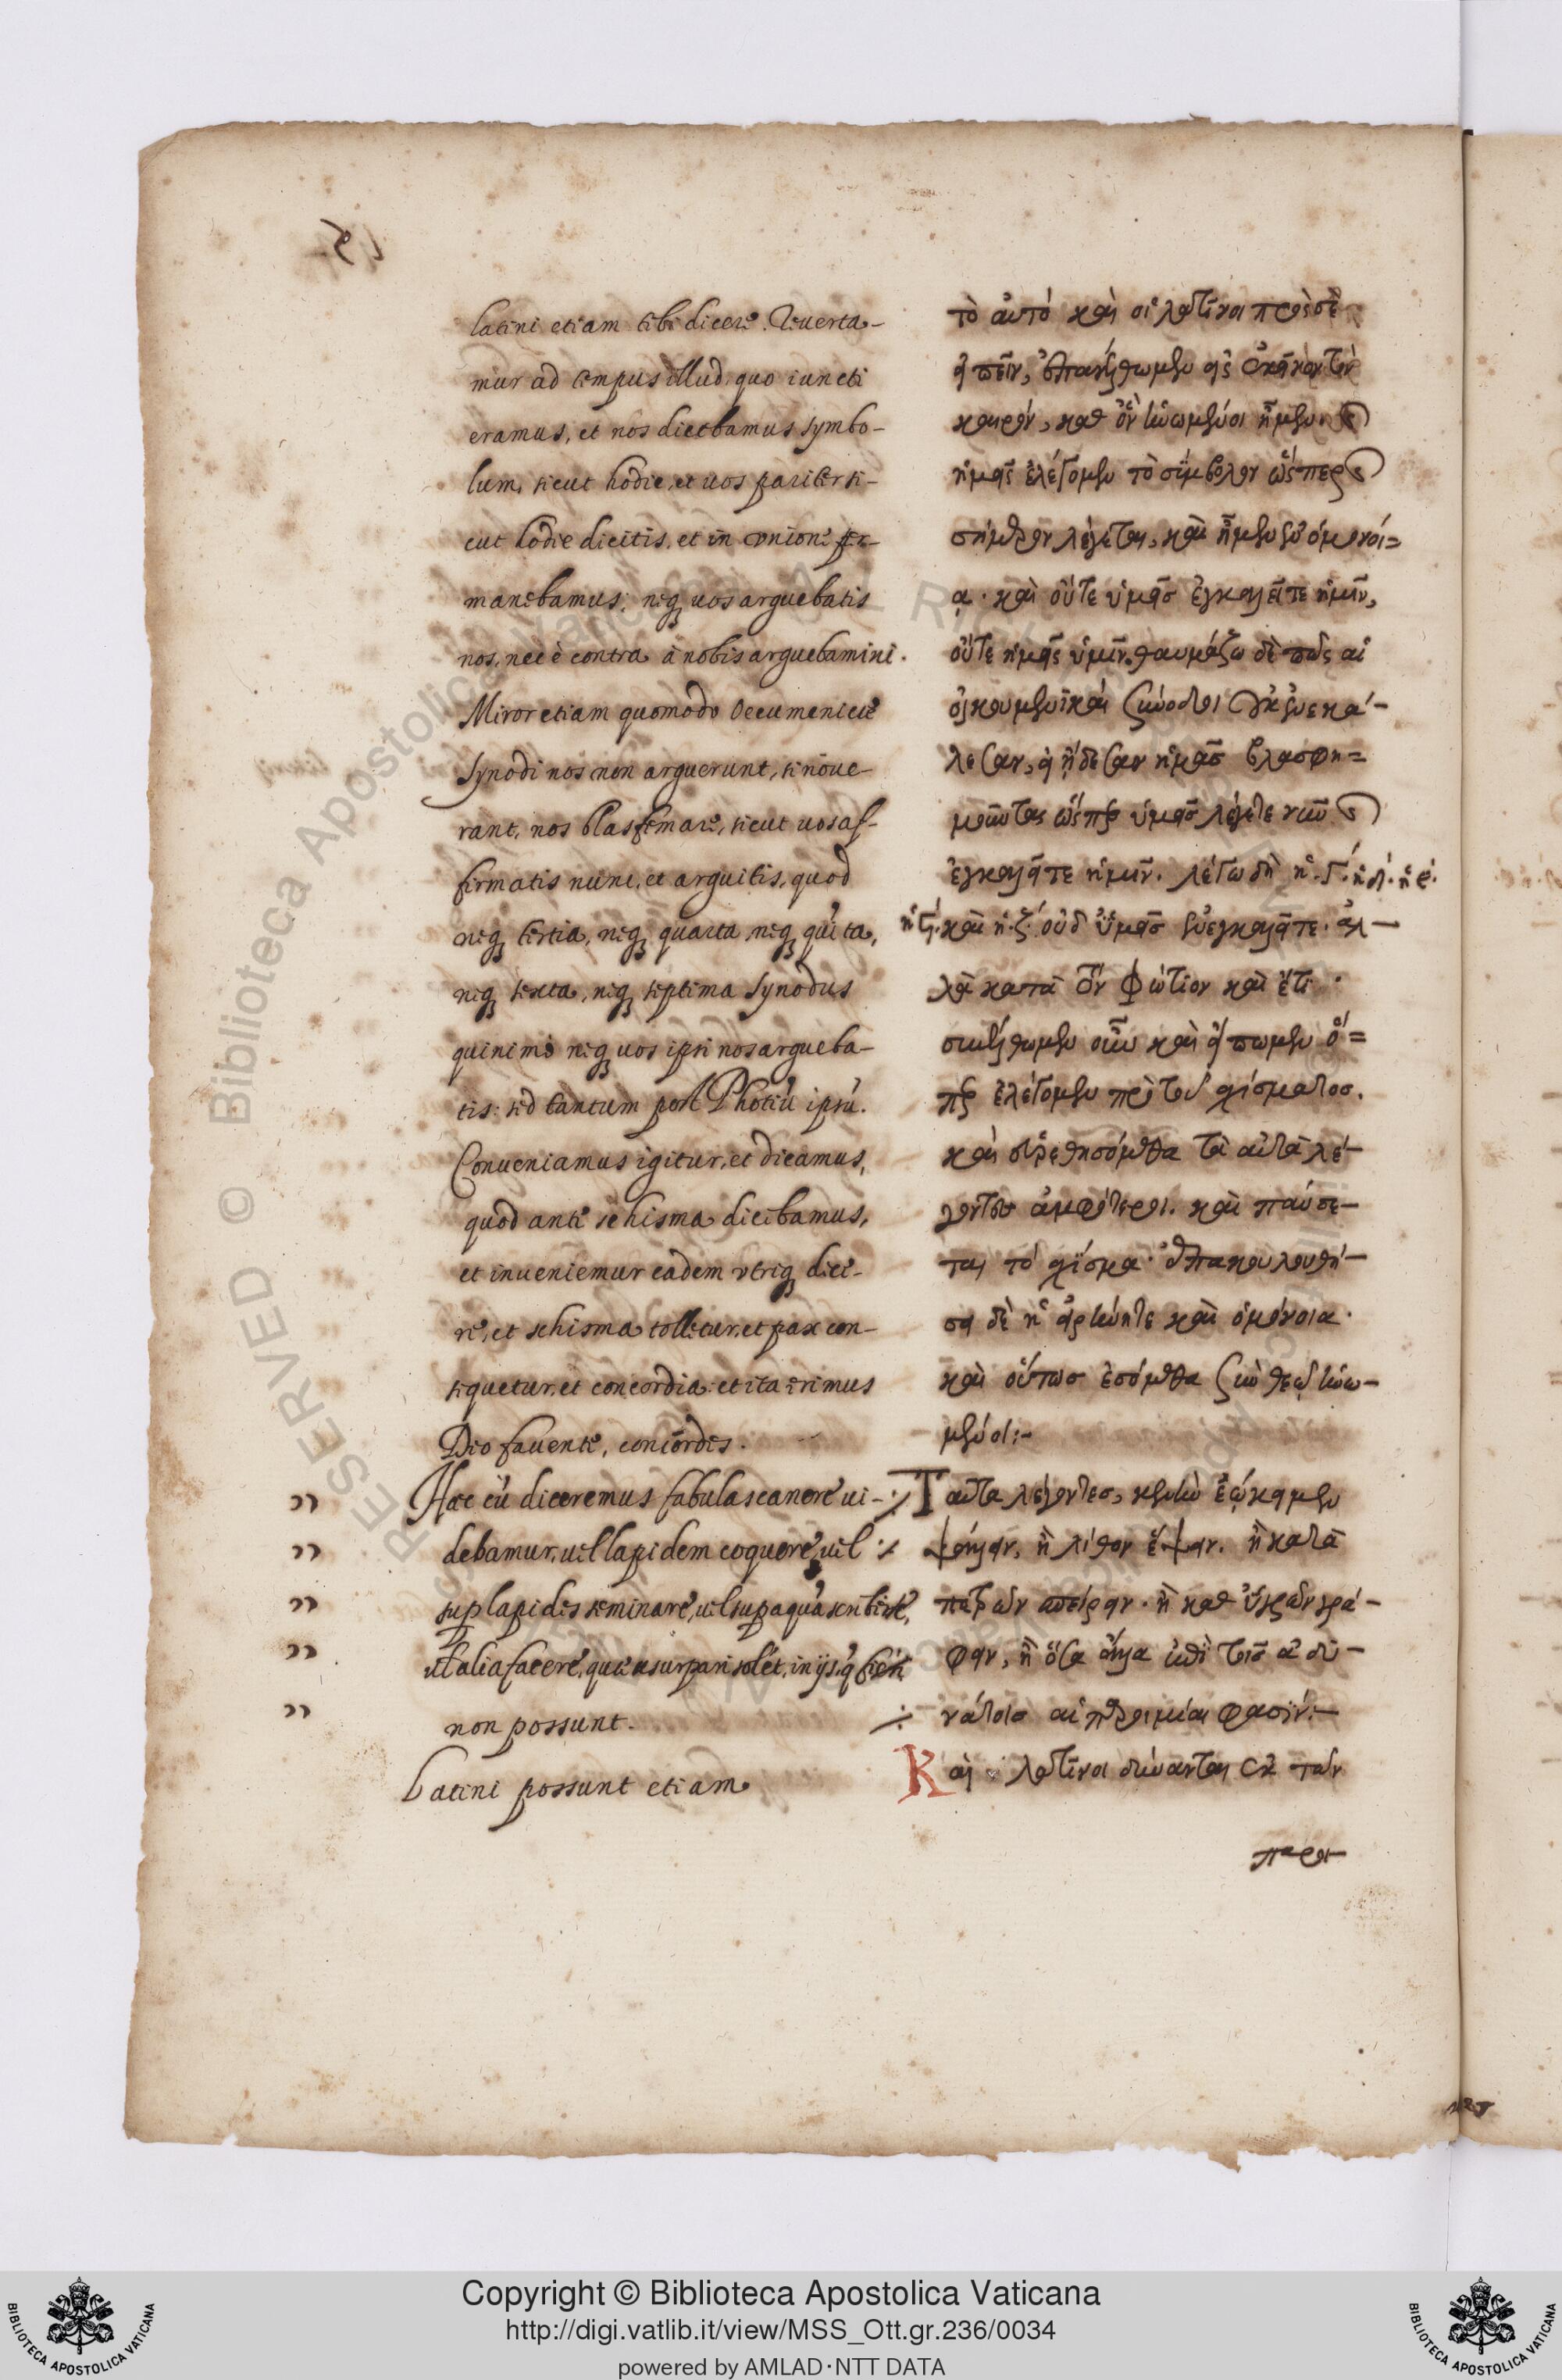 latini etiam tibi dicere. Reuerta-
mur ad tempus illud, quo iuncti
eramus, et nos dicebamus symbo-
lum, sicut hodie, et uos pariter si-
cut hodie dicitis, et in unione per-
manebamus; neq uos arguebatis
nos, nec è contra à nobis arguebamini.
Miror etiam quomodo Oecumenicè
Synodi nos non arguerunt, si noue-
rant, nos blasfemare, sicut uos af-
firmatis nunc, et arguitis, quod
neq tertia, neq quarta, neq quīta,
neq sexta, neq septima Synodus
quinimò neq uos ipsi nos argueba-
tis: sed tantum post Photiū ipsū.
Conueniamus igitur, et dicamus,
quod ante schisma dicebamus,
et inueniemur eadem utriq dice-
re, et schisma tolletur, et pax con-
sequetur, et concordia: et ita erimus
Deo fauente, concordes.
Hæc cū diceremus fabulas canere ui-
debamur, uel lapidem coquere, uel
sup lapides seminare, uel sup aquā scribere,
uel alia facere, quæ usurpari solēt, in ijs, q fieri
non possunt.
Latini possunt etiam
τὸ αὐτό καὶ οἱ λατῖνοι πρὸς σὲ
εἰπεῖν, ἐπανέλθωμεν εἰς ἐκεῖνον τὸν
καιρόν, καθ ὃν ἡνωμένοι ἦμεν
ἡμεῖς ἐλέγομεν τὸ σύμβολον ὥσπερ
σήμερον λέγεται, καὶ ἦμεν ἐν ὁμονοί=
ᾳ. καὶ οὔτε ὑμεῖσ ἐγκαλεῖτε ἡμῖν,
οὔτε ἡμεῖς ὑμῖν. θαυμάζω δὲ πῶς αἱ
οἰκουμενικαὶ σύνοδοι οὐκ ἐνεκά-
λεσαν, εἰ ᾔδεσαν ἡμᾶσ βλασφη=
μοῦντας ὥσπερ ὑμεῖσ λέγετε νῦν
ἐγκαλεῖτε ἡμῖν. λέγω δὴ ἡ. γ. ἡ δ. ἡ ε.
ἡ ϛ. καὶ ἡ. ζ. οὐδ ὑμεῖσ ἐνεγκαλεῖτε. ἀλ-
λὰ κατὰ τὸν Φώτιον καὶ ἔτι.
συνέλθωμεν οὖν καὶ εἴπωμεν ὅ=
περ ἐλέγομεν πρὸ τοῦ σχίσματοσ.
καὶ εὑρεθησόμεθα τὰ αὐτὰ λέ-
γοντεσ ἀμφότεροι. καὶ παύσε-
ται τὸ σχίσμα. ἐπακολουθή-
σει δὲ ἡ εἰρήνη τε καὶ ὁμόνοια.
καὶ οὕτωσ ἐσόμεθα σὺν θεῷ ἡνω-
μένοι:-
Ταῦτα λέγοντεσ, κενὸν ἐῴκειμεν
ψάλλειν, ἢ λίθον ἕψειν. ἢ κατὰ
πετρῶν σπείρειν. ἢ καθ ὑγρῶν γρά-
φειν, ἢ ὅσα ἄλλα ἐπὶ τοῖσ ἀδυ-
νάτοισ αἱ παροιμίαι φασίν:-
Καὶ λατῖνοι δύνανται ἐκ τῶν
παροι-